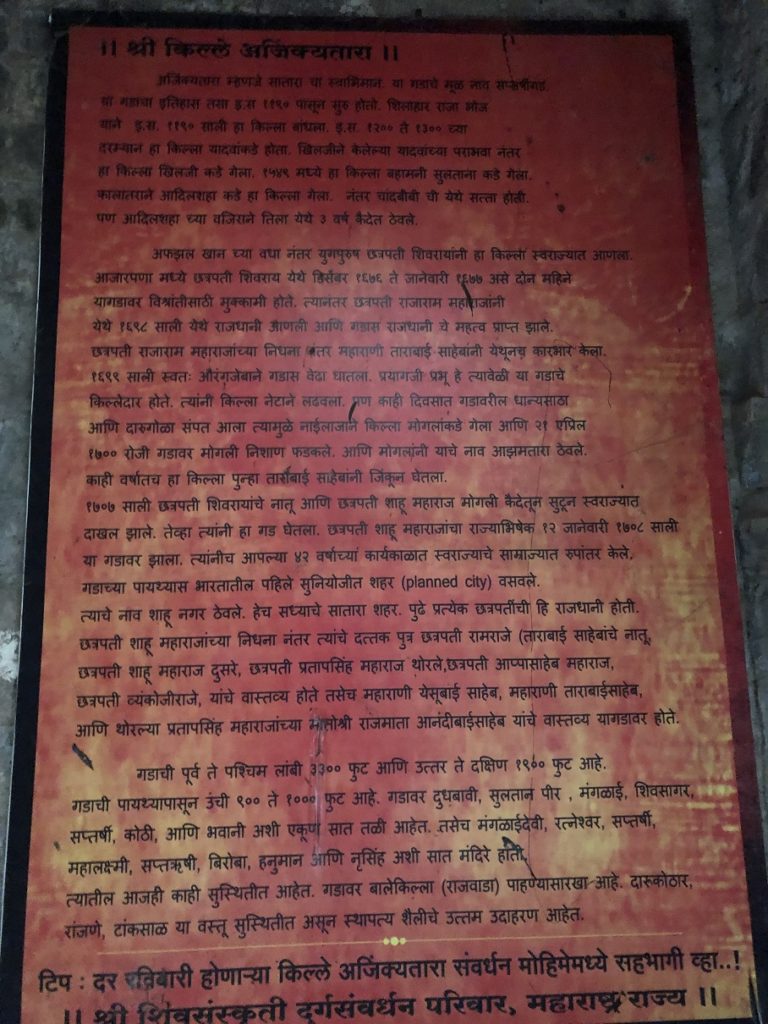 ।। श्री किल्ले अजिंक्यतारा ।।
अजिंक्यतारा म्हणजे सातारा चा स्वाभिमान. या गडाचे मूळ नाव सप्तर्षीगड.
या गडाचा इतिहास तसा इ.स ११९० पासून सुरु होतो. शिलाहार राजा भोज
याने इ.स. ११९० साली हा किल्ला बांधला. इ.स. १२०० ते १३०० च्या
दरम्यान हा किल्ला यादवांकडे होता. खिलजीने केलेल्या यादवांच्या पराभवा नंतर
हा किल्ला खिलजी कडे गेला. १५४९ मध्ये हा किल्ला बहामनी सुलताना कडे गेला.
कालातराने आदिलशहा कडे हा किल्ला गेला. नंतर चांदबीबी ची येथे सत्ता होती.
पण आदिलशहा च्या वजिराने तिला येथे ३ वर्ष कैदेत ठेवले.
अफझल खान च्या वधा नंतर युगपुरुष छत्रपती शिवरायांनी हा किल्ला स्वराज्यात आणला.
आजारपणा मध्ये छत्रपती शिवराय येथे डिसेंबर १६७६ ते जानेवारी १६७७ असे दोन महिने
यागडावर विश्रांतीसाठी मुक्कामी होते. त्यानंतर छत्रपती राजाराम महाराजांनी
येथे १६९८ साली येथे राजधानी आणली आणि गडास राजधानी चे महत्व प्राप्त झाले.
छत्रपती राजाराम महाराजांच्या निधना नंतर महाराणी ताराबाई साहेबांनी येथूनच कारभार केला.
१६९९ साली स्वतः औरंगजेबाने गडास वेढा घातला. प्रयागजी प्रभू हे त्यावेळी या गडाचे
किल्लेदार होते. त्यांनी किल्ला नेटाने लढवला. पण काही दिवसात गडावरील धान्यसाठा
आणि दारुगोळा संपत आला त्यामुळे नाईलाजाने किल्ला मोगलांकडे गेला आणि २१ एप्रिल
१७०० रोजी गडावर मोगली निशाण फडकले. आणि मोगलांनी याचे नाव आझमतारा ठेवले.
काही वर्षातच हा किल्ला पुन्हा ताराबाई साहेबांनी जिंकून घेतला.
१७०७ साली छत्रपती शिवरायांचे नातू आणि छत्रपती शाहू महाराज मोगली कैदेतून सुटून स्वराज्यात
दाखल झाले. तेव्हा त्यांनी हा गड घेतला. छत्रपती शाहू महाराजांचा राज्याभिषेक १२ जानेवारी १७०८ साली
या गडावर झाला. त्यांनीच आपल्या ४२ वर्षाच्यां कार्यकाळात स्वराज्याचे साम्राज्यात रुपांतर केले.
गडाच्या पायथ्यास भारतातील पहिले सुनियोजीत शहर (planned city) वसवले.
त्याचे नाव शाहू नगर ठेवले. हेच सध्याचे सातारा शहर. पुढे प्रत्येक छत्रपतींची हि राजधानी होती.
छत्रपती शाहू महाराजांच्या निधना नंतर त्यांचे दत्तक पुत्र छत्रपती रामराजे (ताराबाई साहेबांचे नातू,
छत्रपती शाहू महाराज दुसरे, छत्रपती प्रतापसिंह महाराज थोरले,छत्रपती आप्पासाहेब महाराज,
छत्रपती व्यंकोजीराजे, यांचे वास्तव्य होते तसेच महाराणी येसूबाई साहेब, महाराणी ताराबाईसाहेब,
आणि थोरल्या प्रतापसिंह महाराजांच्या मातोश्री राजमाता आनंदीबाईसाहेब यांचे वास्तव्य यागडावर होते.
गडाची पूर्व ते पश्चिम लांबी ३३०० फुट आणि उत्तर ते दक्षिण १९०० फुट आहे.
गडाची पायथ्यापासून उंची ९०० ते १००० फुट आहे. गडावर दुधबावी, सुलतान पीर , मंगळाई, शिवसागर,
सप्तर्षी, कोठी, आणि भवानी अशी एकूण सात तळी आहेत. तसेच मंगळाईदेवी, रत्नेश्वर, सप्तर्षी,
महालक्ष्मी, सप्तऋषी, बिरोबा, हनुमान आणि नृसिंह अशी सात मंदिरे होती,
त्यातील आजही काही सुस्थितीत आहेत. गडावर बालेकिल्ला (राजवाडा) पाहण्यासारखा आहे. दारूकोठार,
रांजणे, टांकसाळ या वस्तू सुस्थितीत असून स्थापत्य शैलीचे उत्तम उदाहरण आहेत.
टिप : दर रविबारी होणाऱ्या किल्ले अजिंक्यतारा संवर्धन मोहिमेमध्ये सहभागी व्हा..!
।। श्री शिवसंस्कृती दुर्गसंवर्धन परिवार, महाराष्ट्र राज्य ।।